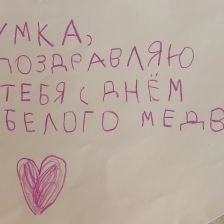 УМКА,
ПОЗДРАВЛЯЮ
ТЕБЯ С ДНЁМ
БЕЛОГО МЕДВ